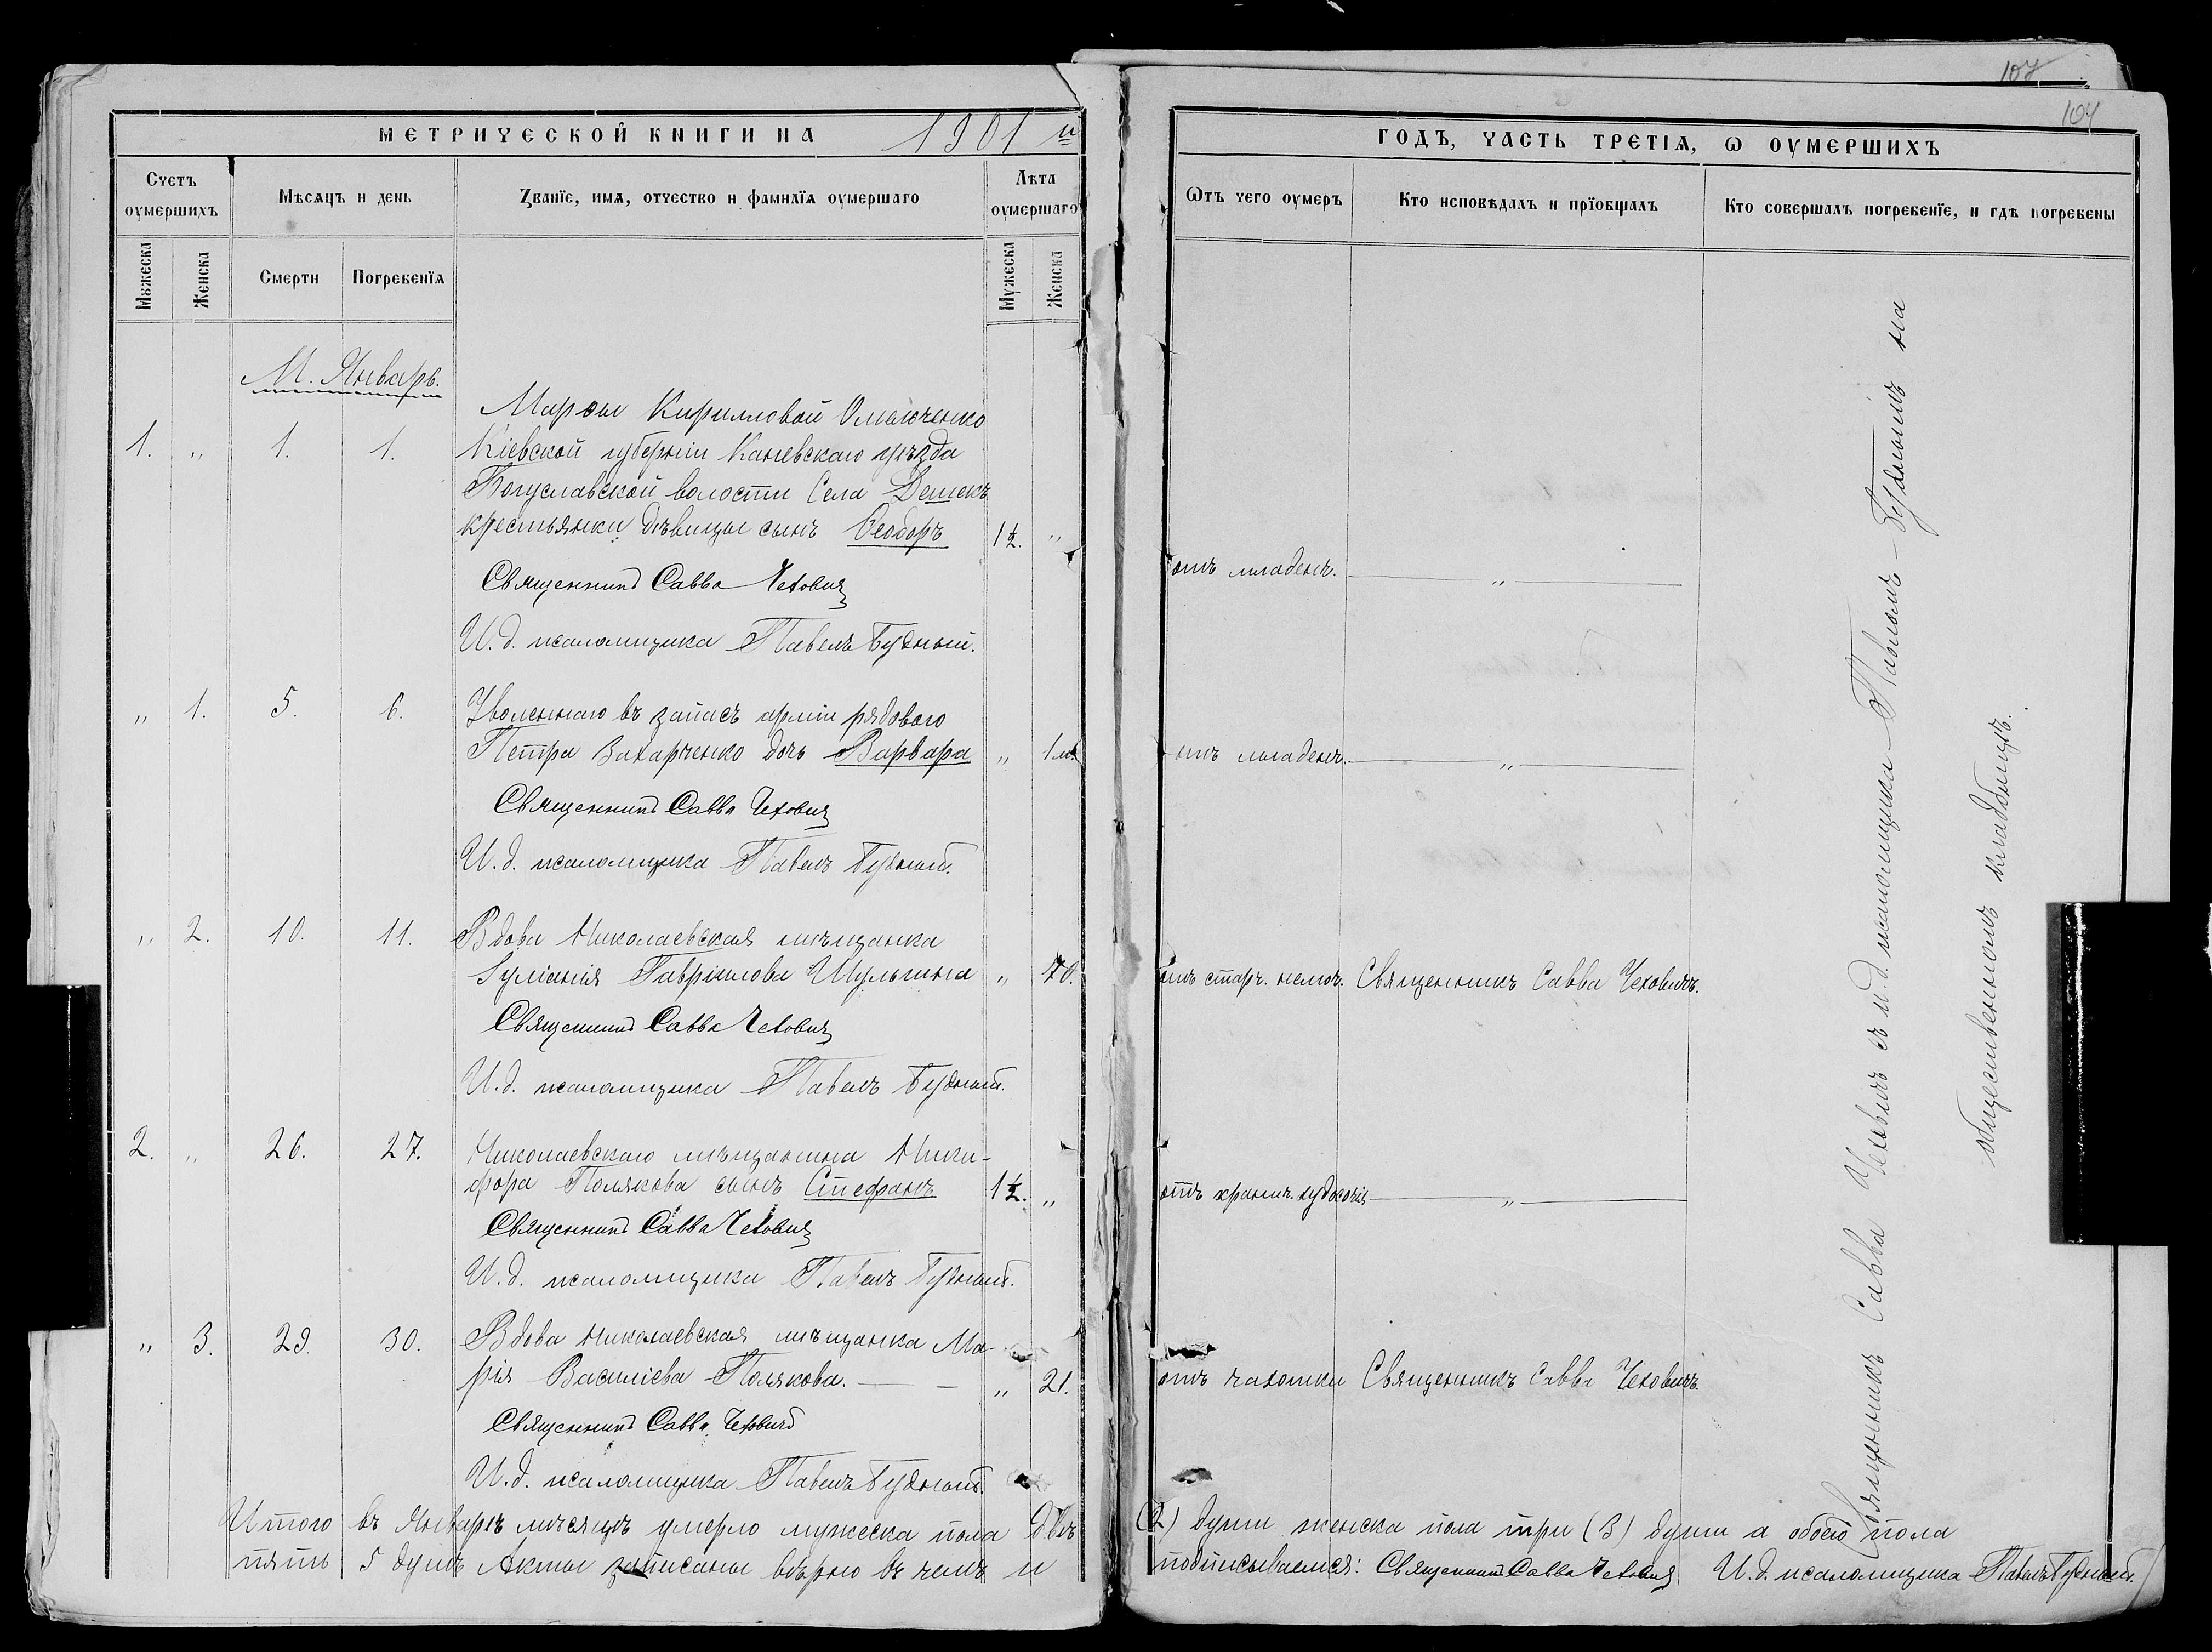 107
104
МЕТРИЧЕСКОЙ КНИГИ НА 1901 й
ГОДЪ, ЧАСТЬ ТРЕТІѦ, Ѡ ОУМЕРШИХЪ
Счетъ оумершихъ
Мѣсѧцъ и день
Званїе, имѧ, отчество и фамилїѧ оумершаго
Лѣта оумершаго
Ѿтъ чего оумеръ
Кто исповѣдалъ и прїобщалъ
Кто совершалъ погребенїе, и гдѣ погребены
Мужеска
Женска
Смерти
Погребенїѧ
Мужеска
Женска
М. Январь.
Марѳы Кирилловой Омельченко
1. " 1. 1. Кіевской губерніи Каневскаго уѣзда
Богуславской волости Села Дешекъ
крестьянки дѣвицы сынъ Ѳеодоръ 1½. "
отъ младенч. "
Священникъ Савва Чеховичъ
И. д. псаломщика Павелъ Будный.
" 1. 5. 6. Уволеннаго въ запасъ арміи рядового
Петра Захарченко дочь Варвара " 1 м.
отъ младенч. "
Священникъ Савва Чеховичъ
И. д. псаломщика Павелъ Будный.
" 2. 10. 11. Вдова Николаевская мѣщанка
Іуліанія Гавріилова Шульгина " 70.
отъ старч. немощ. Священникъ Савва Чеховичъ.
Священникъ Савва Чеховичъ
И. д. псаломщика Павелъ Будный.
2. " 26. 27. Николаевскаго мѣщанина Ники-
фора Полякова сынъ Стефанъ 1½. "
отъ хронич. худосочія "
Священникъ Савва Чеховичъ
И. д. псаломщика Павелъ Будный.
" 3. 29. 30. Вдова Николаевская мѣщанка Ма-
рія Василіева Полякова. " 21.
отъ чахотки Священникъ Савва Чеховичъ.
Священникъ Савва Чеховичъ
И. д. псаломщика Павелъ Будный.
Священникъ Савва Чеховичъ съ и. д. псаломщика Павломъ Буднымъ на
общественномъ кладбищѣ.
Итого въ Январѣ мѣсяцѣ умерло мужеска пола двѣ (2) души женска пола три (3) души а обоего пола
пять 5 душъ Акты записаны вѣрно въ чемъ и подписываемся: Священникъ Савва Чеховичъ И. д. псаломщика Павелъ Будный.